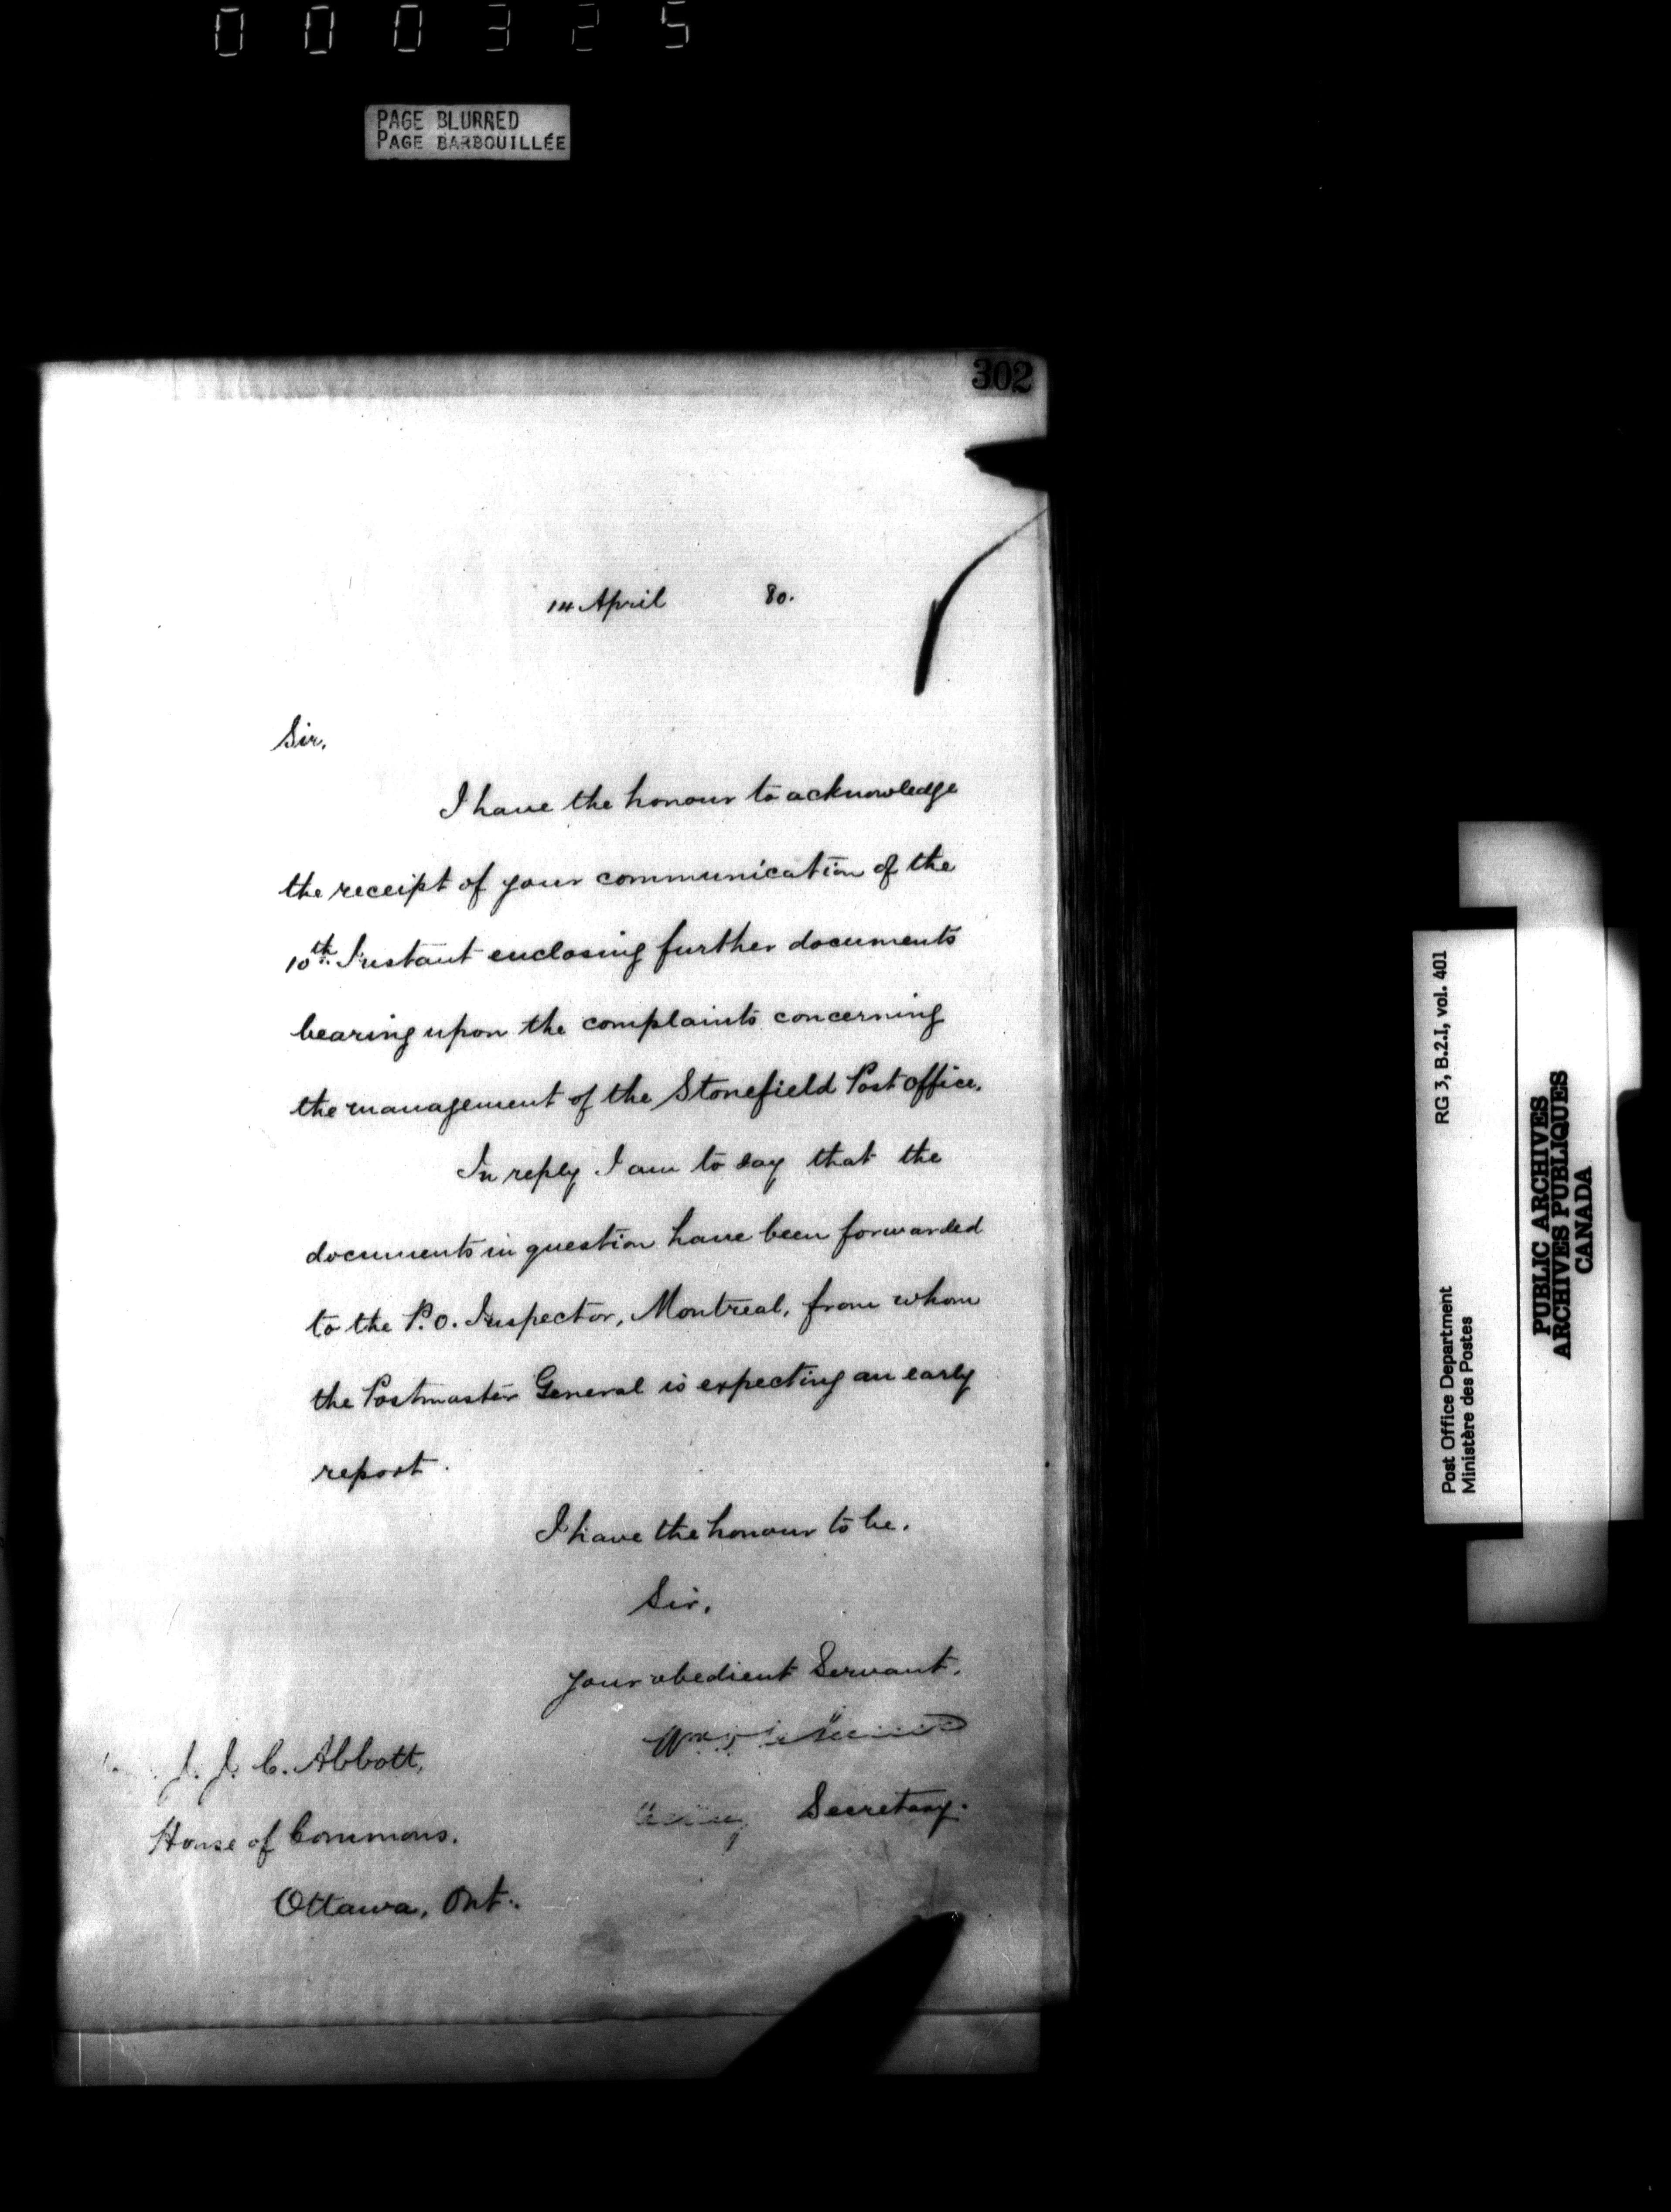 000325
PAGE BLURRED
PAGE BARBOUILLÉE
302
14 April 80.
Sir,
I have the honour to acknowledge
the receipt of your communication of the
10th Instant enclosing further documents
bearing upon the complaints concerning
the management of the Stonefield Post office.
In reply I am to say that the
documents in question have been forwarded
to the P.O. Inspector, Montreal, from whom
the Postmaster General is expecting an early
report.
I have the honour to be,
Sir,
your obedient Servant,
Wm
Secretary.
J. J. C. Abbott,
House of Commons.
Ottawa, Ont.
RG 3, B.2.I, vol. 401
Post Office Department
Ministère des Postes
PUBLIC ARCHIVES
ARCHIVES PUBLIQUES
CANADA